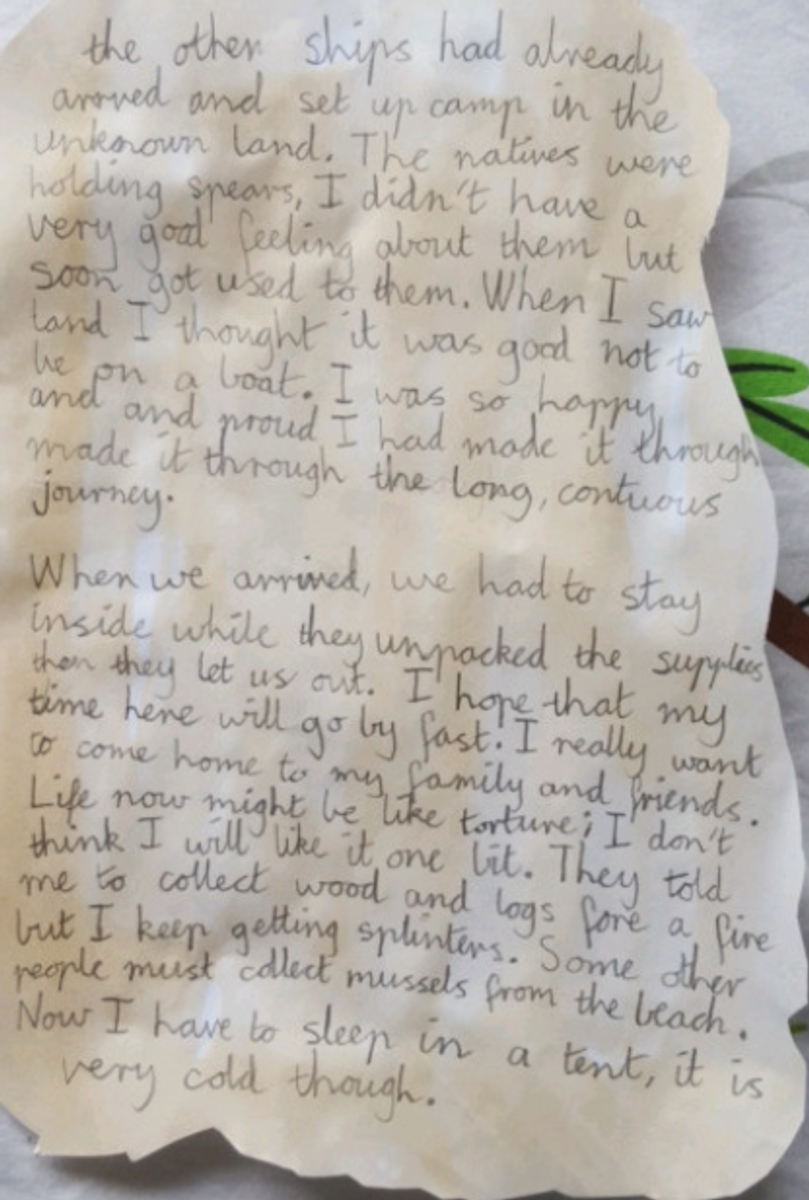 the other ships had already
arroved and set up camp in the
unknown land. The natives were
holding spears, I didn't have a
very good feeling about them but
soon got used to them. When I saw
land I thought it was good not to
be on a boat. I was so happy
and and proud I had made it through
made it through the long, contuous
journey.
When we arrived, we had to stay
inside while they unpacked the supplies
then they let us out. I hope that my
time here will go by fast. I really want
to come home to my family and friends.
Life now might be like torture; I don't
think I will like it one bit. They told
me to collect wood and logs fore a fire
but I keep getting splinters. Some other
people must collect mussels from the beach.
Now I have to sleep in a tent, it is
very cold though.